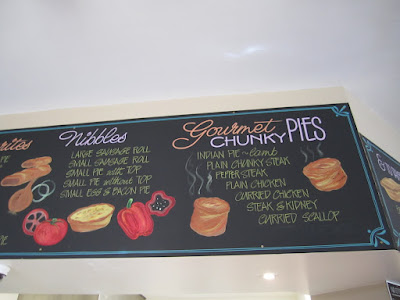 rites
PIE
Nibbles
LARGE SAUSAGE ROLL
SMALL SAUSAGE ROLL
SMALL PIE with TOP
SMALL PIE without TOP
SMALL EGG & BACON PIE
Gourmet
CHUNKY PIES
INDIAN PIE ~ lamb
PLAIN CHUNKY STEAK
PEPPER STEAK
PLAIN CHICKEN
CURRIED CHICKEN
STEAK & KIDNEY
CURRIED SCALLOP